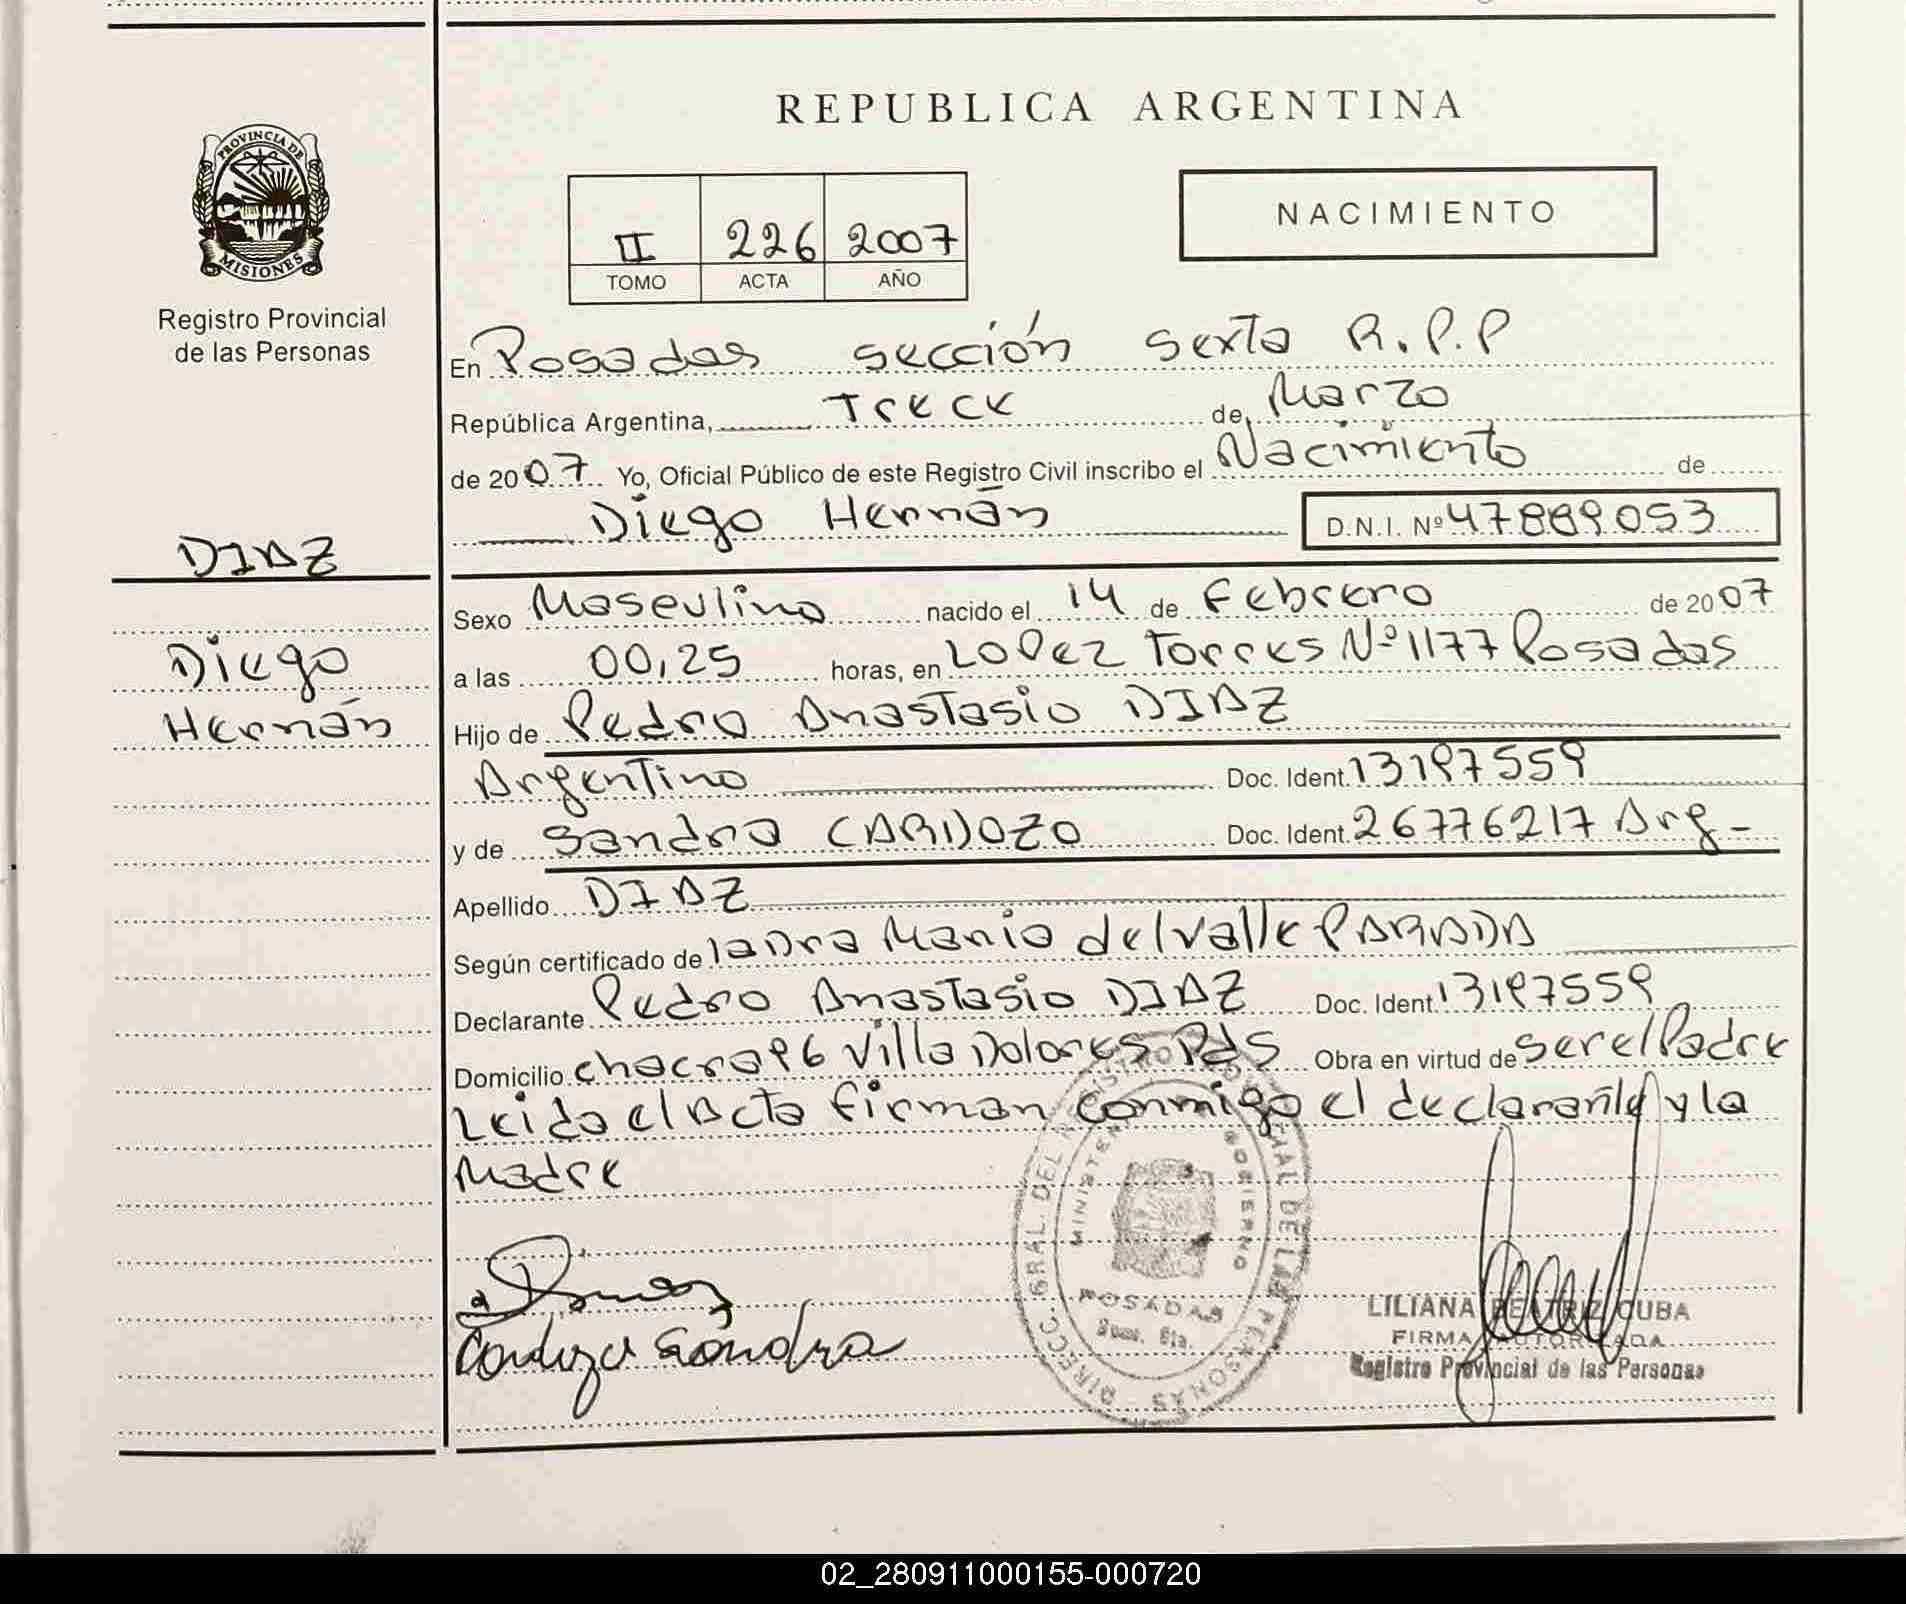 REPUBLICA ARGENTINA
PROVINCIA DE MISIONES
Registro Provincial
de las Personas
NACIMIENTO
II 226 2007
TOMO ACTA AÑO
En Posadas sección sexta R.P.P
República Argentina, Trece de Marzo
de 2007 Yo, Oficial Público de este Registro Civil inscribo el Nacimiento de
Diego Hernán D.N.I. Nº 47889053
DIAZ
Diego
Hernán
Sexo Masculino nacido el 14 de Febrero de 2007
a las 00,25 horas, en Lopez Torres Nº 1177 Posadas
Hijo de Pedro Anastasio DIAZ
Argentino Doc. Ident. 13197559
y de Sandra CARDOZO Doc. Ident. 26776217 Arg-
Apellido DIAZ
Según certificado de la Dra Maria del Valle PARADA
Declarante Pedro Anastasio DIAZ Doc. Ident. 13197559
Domicilio chacra 96 Villa Dolores Pds Obra en virtud de ser el Padre
Leida el Acta firman conmigo el declarante y la
Madre
Sandra
DIRECC. GRAL. DEL REGISTRO PROVINCIAL DE LAS PERSONAS
GOBIERNO
POSADAS
LILIANA BEATRIZ CUBA
FIRMA AUTORIZADA
Registro Provincial de las Personas
02_280911000155-000720